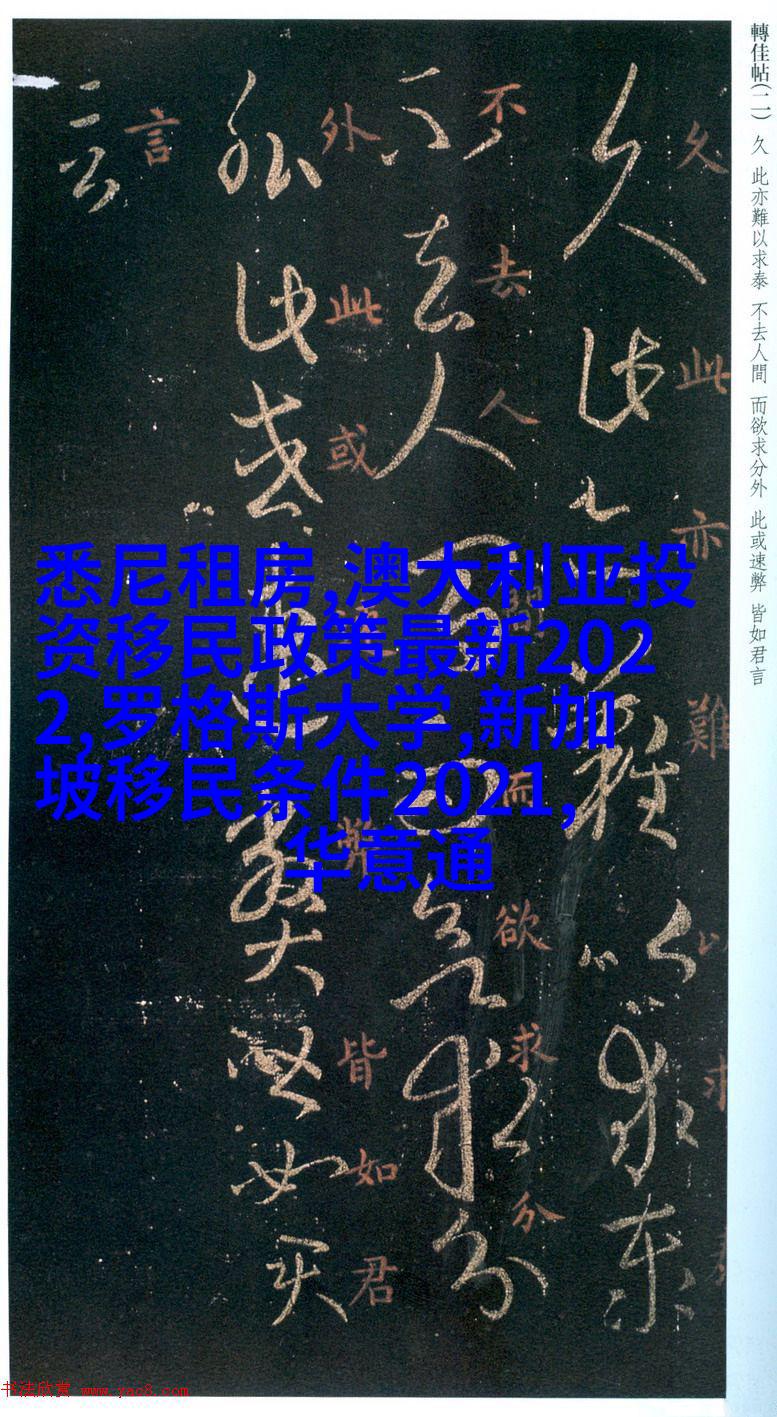 轉佳帖(二) 久 此亦難以求泰 不去人間 而欲求分外 此或速弊 皆如君言
久此亦難以求泰
不去人間而欲求分
外此或速弊皆如君
言
悉尼租房,澳大利亚投
资移民政策最新202
2,罗格斯大学,新加
坡移民条件2021,
华意通
书法欣赏 www.yac8.com